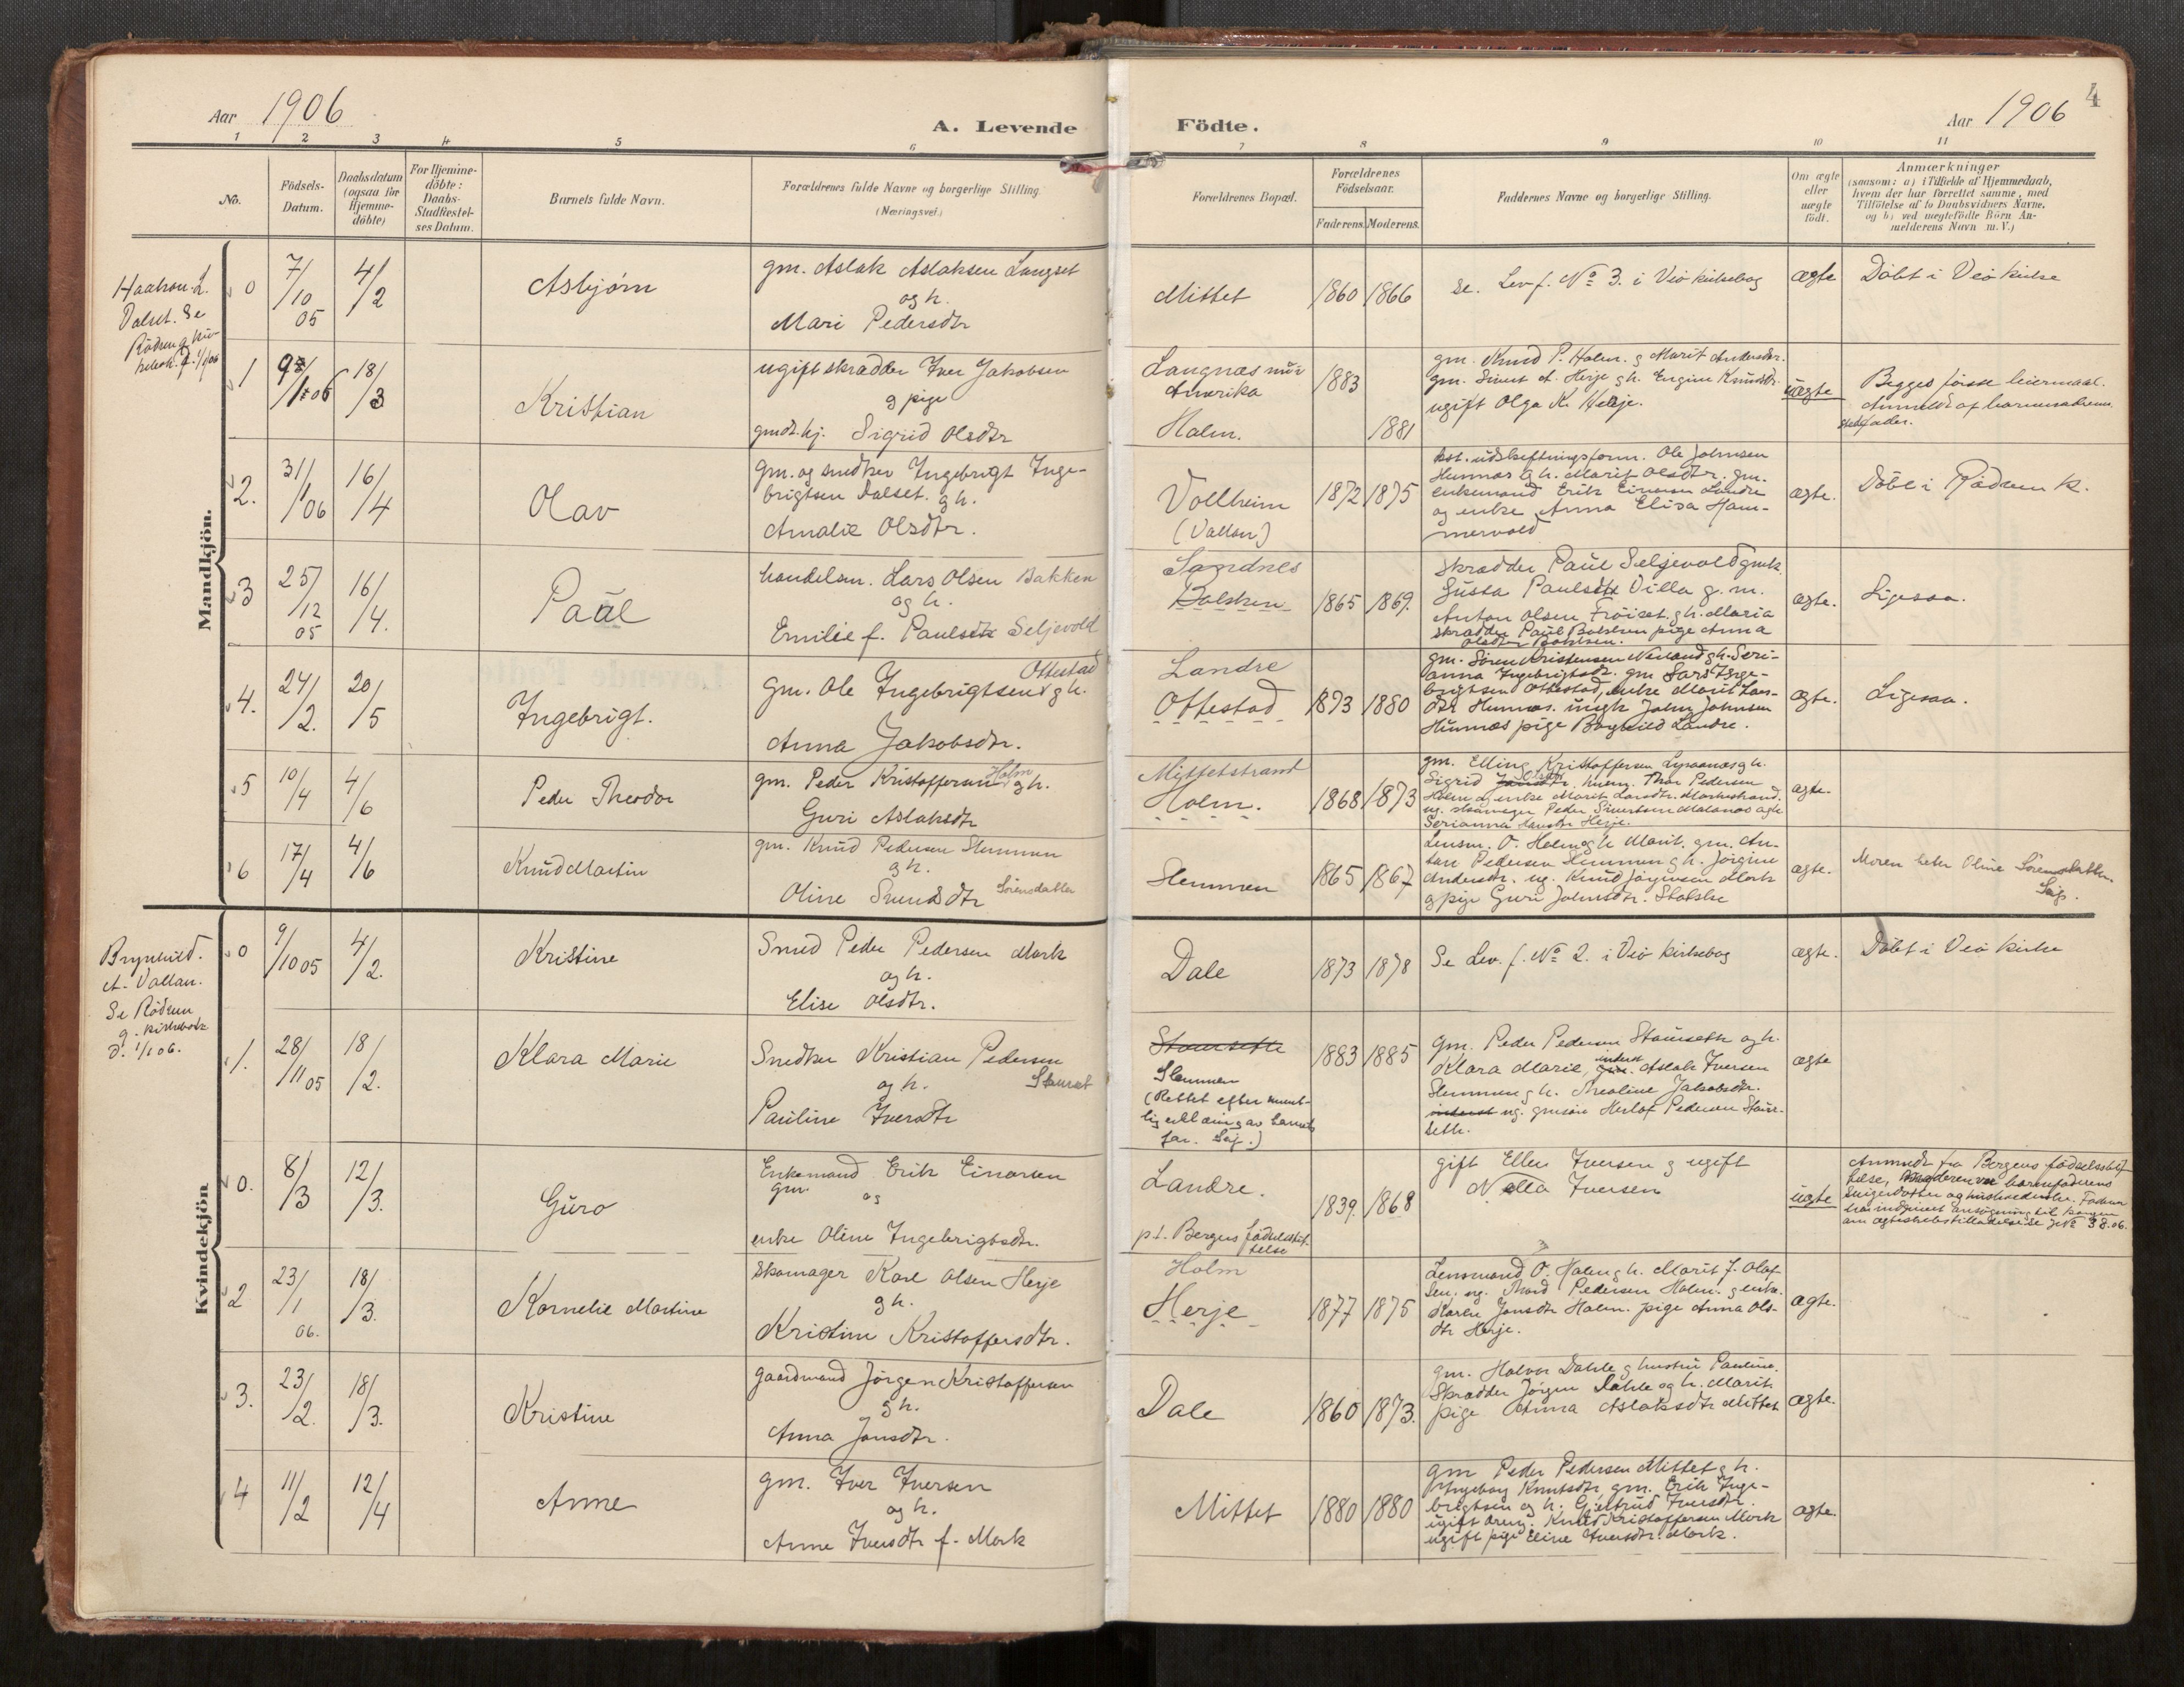 Aar 1906
A. Levende
Födte.
Aar 1906
4
1 2 3 4 5 6 7 8 9 10 11
No.
Födsels-
Datum.
Daabsdatum
(ogsaa for
Hjemme-
döbte)
For Hjemme-
döbte:
Daabs-
Stadfæstel-
ses Datum.
Barnets fulde Navn.
Forældrenes fulde Navne og borgerlige Stilling.
(Næringsvei.)
Forældrenes Bopæl.
Forældrenes
Födselsaar.
Faderens. Moderens.
Faddernes Navne og borgerlige Stilling.
Om ægte
eller
uægte
födt.
Anmærkninger
(saasom: a) i Tilfælde af Hjemmedaab,
hvem der har forrettet samme, med
Tilföielse af to Daabsvidners Navne,
og b) ved uægtefödte Börn An-
melderens Navn m. V.)
Mandkjön.
Haakon L.
Dalset. Se
0
7/10 05
4/2
Asbjørn
gm. Aslak Aslaksen Langset
og h.
Mari Pedersdtr
Mittet
1860 1866
Se. Lev f. No 3. i Veö kirkebog
ægte
Döbt i Veö kirke
1
18/3
Kristian
ugift skrædder Iver Jakobsen
g pige
gmdt. hj. Sigrid Olsdtr
Langnæs nu i
Amerika
Holm.
1883
1881
gm. Knud P. Holm. g Marit Andersdtr.
gm. Sivert A. Herje g h. Engine Knudsdtr.
ugift Olga K. Herje.
uægte
Begges første leiermaal.
Anmeldt af barnemoderens
stedfader.
2.
31/1 06
16/4
Olav
Gm. og snedker Ingebrigt Inge-
brigtsen Dalset. g h.
Amalie Olsdtr.
Vollheim
(Vallan)
1872 1875
kst. udskiftningsform. Ole Johnsen
Hunnæs g h. Marit Olsdtr. gm.
enkemand Erik Einarsen Landre
og enke Anna Elisa Ham-
mervold
ægte.
Döbt i Rödven K.
3
25/12 05
16/4.
Paul
handelsm. Lars Olsen Bakken
og h.
Emilie f. Paulsdtr Seljevold
Sandnes
Bolsken
1865 1869.
Skrædder Paul Seljevold gmk.
Gusta Paulsdtr Villa g. m.
Anton Olsen Frøiset g h. Maria
skrædder Paul Bolsken pige Anna
Olsdtr Bolsken.
ægte.
Ligesaa.
4.
24/2.
20/5
Ingebrigt.
Ottestad
Gm. Ole Ingebrigtsen g h.
Anna Jakobsdtr.
Landre
Ottestad
1873 1880
gm. Søren Kristensen g h. Seri-
anna Ingebrigtsdtr. gm Lars Inge-
brigtsen Ottestad, enke Marit Lars-
dtr Hunnæs. ungk John Johnsen
Hunnæs pige Borghild Landre.
ægte.
Ligesaa.
5
10/4
4/6
Peder Theodor
gm. Peder Kristoffersen Holm g h.
Guri Aslaksdtr
Mittetstrand
Holm.
1868 1873
gm. Elling Kristoffersen g h.
Sigrid Thor Pedersen
Holm g enke Marit Larsdtr.
ug. skomager Peder Sivertsen
Serianna Herje.
ægte.
6
17/4
4/6
Knud Martin
gm. Knud Pedersen Slemmen
g h.
Oline Svendsdtr Sörensdatter
Slemmen
1865 1867
Lensm. O. Holm g h Marit. gm. An-
ton Pedersen Slemmen g h. Jørgine
Andersdtr. ug. Knud Jørgensen Mork
g pige Guri Johnsdtr.
ægte.
Moren heter Oline Sörensdatter.
Seip.
Kvindekjön
Brynhild.
A. Vallan.
Se Rödven
g. kirkebok
d. 1/1 06.
0
9/10 05
4/2.
Kristine
Smed Peder Pedersen Mork
og h.
Elise Olsdtr.
Dale
1873 1878
Se Lev. f. No 2. i Veö kirkebog
ægte.
Döbt i Veö kirke
1.
28/11 05
18/2.
Klara Marie
Snedker Kristian Pedersen
og h. Staurset
Pauline Iversdtr
Staurseth
Slemmen
(Rettet efter munt-
lig erklæring av barnets
far. Seip.)
1883 1885
gm. Peder Pedersen Staurseth og h.
Klara Marie, inderst Aslak Iversen
Slemmen g h. Theoline Jakobsdtr.
inderst ug. gmsøn Herlof Pedersen Staur-
seth.
ægte
0.
8/3
12/3.
Guro
Enkemand Erik Einarsen
gm. og
enke Oline Ingebrigtsdtr.
Landre.
p.t. Bergens fødselsstif-
telse
1839. 1868
gift Ellen Iversen g ugift
Nella Iversen
uægte
Anmeldt fra Bergens fødselsstif-
telse, Moderen var barnefaderens
svigerdatter og husholderske. Faderen
har indgivet ansøgning til kongen
om ægteskabstilladelse se No 38.06.
2
23/1 06.
18/3.
Kornelie Martine
Skomager Karl Olsen Herje
g h.
Kristine Kristoffersdtr.
Holm
Herje
1877 1875
Lensmand O. Holm g h. Marit f. Olaf-
sen. ug. Thord Pedersen Holm. g enke.
Karen Jonsdtr Holm. pige Anna Ols-
dtr Herje.
ægte.
3.
23/2.
18/3.
Kristine
Gaardmand Jørgen Kristoffersen
g h.
Anna Jonsdtr.
Dale
1860 1873.
gm. Halvor Dahle g hustru Pauline.
Skrædder Jørgen Dahle og h. Marit
pige Anna Aslaksdtr Mittet
ægte.
4
11/2
12/4
Anne
gm. Iver Iversen
og h.
Anne Iversdtr f. Mork
Mittet
1880 1880
gm Peder Pedersen Mittet g h.
Ingeborg Knutsdtr, gm. Erik Inge-
brigtsen og h. Gjertrud Iversdtr.
ugift dreng. Knud Kristoffersen Mork
ugift pige Eline Iversdtr. Mork.
ægte.